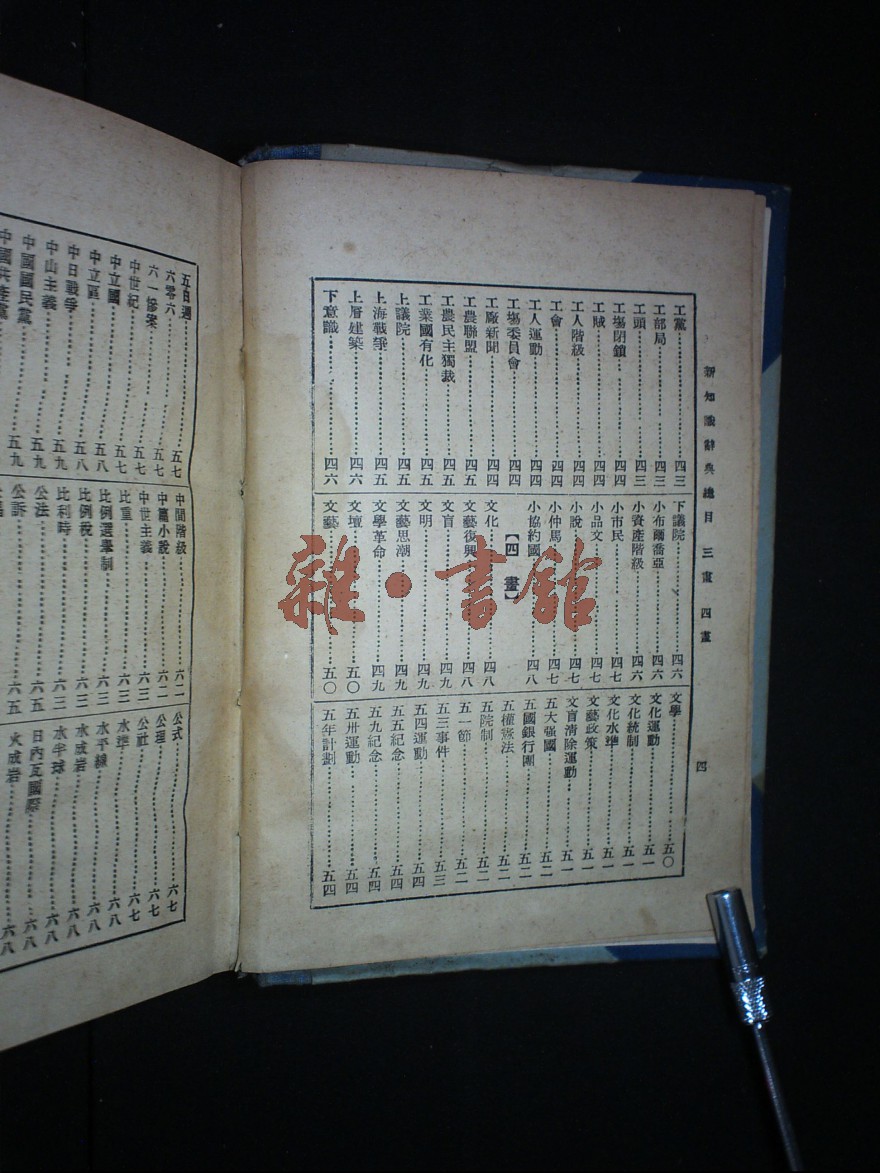 新知識辭典總目 三畫 四畫
四
工黨 四三
工部局 四三
工頭 四三
工場閉鎖 四四
工賊 四四
工人階級 四四
工會 四四
工人運動 四四
工場委員會 四四
工廠新聞 四四
工農聯盟 四五
工農民主獨裁 四五
工業國有化 四五
上議院 四五
上海戰爭 四五
上層建築 四六
下意識 四六
下議院 四六
小布爾喬亞 四六
小資產階級 四六
小市民 四七
小品文 四七
小說 四七
小仲馬 四七
小協約國 四八
【四畫】
文化 四八
文藝復興 四八
文盲 四九
文明 四九
文藝思潮 四九
文學革命 四九
文壇 五〇
文藝 五〇
文學 五〇
文化運動 五一
文化統制 五一
文化水準 五一
文藝政策 五一
文盲清除運動 五一
五大强國 五二
五國銀行團 五二
五權憲法 五二
五院制 五二
五一節 五二
五三事件 五三
五四運動 五四
五五紀念 五四
五九紀念 五四
五卅運動 五四
五年計劃 五四
五百週 五七
六零六 五七
六一慘案 五七
中世紀 五七
中立國 五七
中立區 五八
中日戰爭 五八
中山主義 五九
中國國民黨 五九
中國共產黨 五九
中間階級 六二
中篇小說 六二
中世主義 六三
比重 六三
比例選舉制 六三
比例稅 六三
比利時 六三
公法 六五
公訴 六五
公式 六七
公理 六七
公社 六七
水準 六八
水平線 六八
水成岩 六八
水半球 六八
日內瓦國際 六八
火成岩 六八
雜·書館